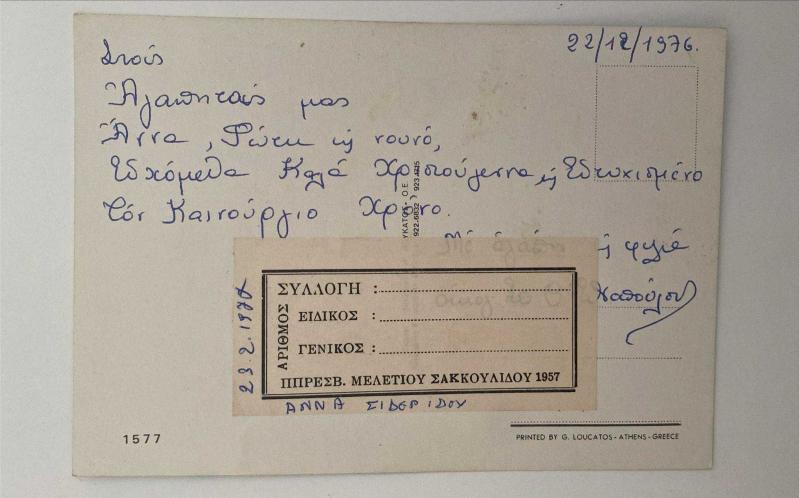 22/12/1976.
Στούς
Ἀγαπητούς μας
Ἄννα, Φώτη κ νουνό,
Εὐχόμεθα Καλά Χριστούγεννα κ Εὐτυχισμένο
τόν Καινούργιο Χρόνο.
Μέ ἀγάπη φιλιά
922.6832 923.4115
ΣΥΛΛΟΓΗ :
ΑΡΙΘΜΟΣ
ΕΙΔΙΚΟΣ :
ΓΕΝΙΚΟΣ :
ΠΠΡΕΣΒ. ΜΕΛΕΤΙΟΥ ΣΑΚΚΟΥΛΙΔΟΥ 1957
23.2.1978
ΑΝΝΑ ΣΙΔΕΡΙΔΟΥ
1577
PRINTED BY G. LOUCATOS - ATHENS - GREECE